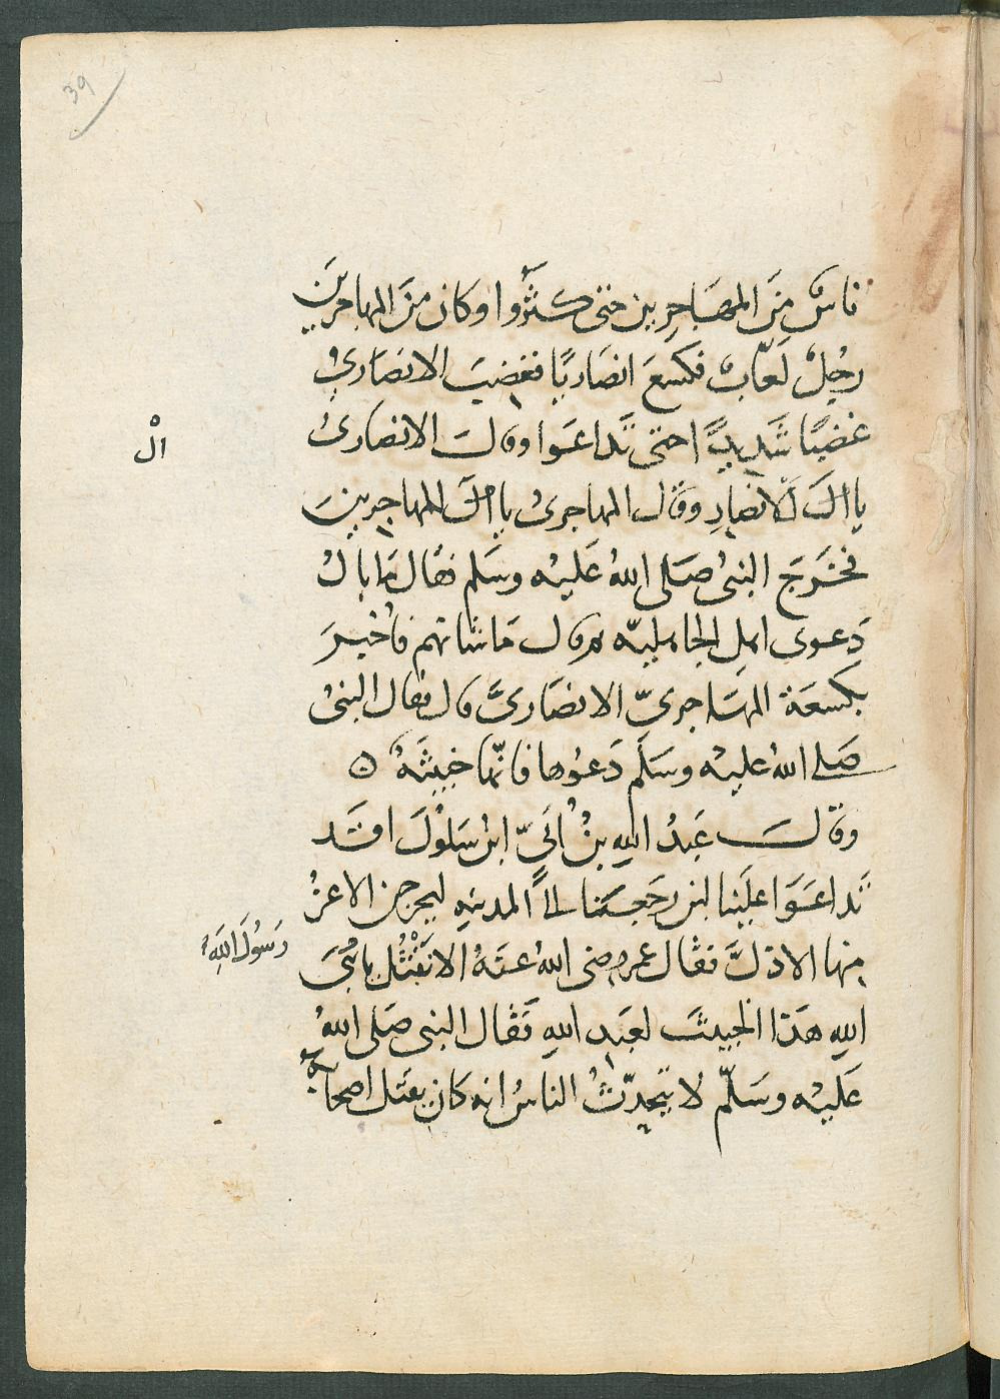 39
ناسٌ مِنَ المهَاجِرِين حتى كَثُرُوا وكان مِنَ المهاجرينَ
رجُلٌ لَعّابٌ فكَسعَ انصَاريًا فغضِبَ الانصَاريُّ
غضبًا شَدِيدًا حتى تَداعَوا وقالَ الانصارىُّ
يا الَ الانصَارِ وَقَال المهاجرىُّ يا الَ المهاجِرينَ
فخَرَجَ النبىُّ صَلى اللهُ عَليْه وسَلم فقال مَا بالُ
دَعوى اهلِ الجاهليّه ثم قال مَا شانهم فاُخبرَ
بكسعَة المهَاجرىّ الانصَارىَّ قال فقال النبىُّ
صَلى اللهُ عليْه وسَلّم دَعُوها فانّها خبيثَةٌ ۝
وقالَ عَبدُ اللهِ بنُ اُبَىّ ابنُ سَلُولَ اقَد
تَداعَوَا علَينا لئن رجَعنا الى المدينه ليخرجن الاعزُّ
منها الاذلَّ فقال عمر رضى اللهُ عنهُ الا نَقْتُل يا نبىَّ
اللهِ هَذا الخبيثَ لعَبدِ اللهِ فَقال النبى صَلى اللهُ
عَليْه وسَلّم لا يتَحدّثُ الناسُ انه كان يقتل اصحابَهُ
الْ
رَسُولَ اللهِ